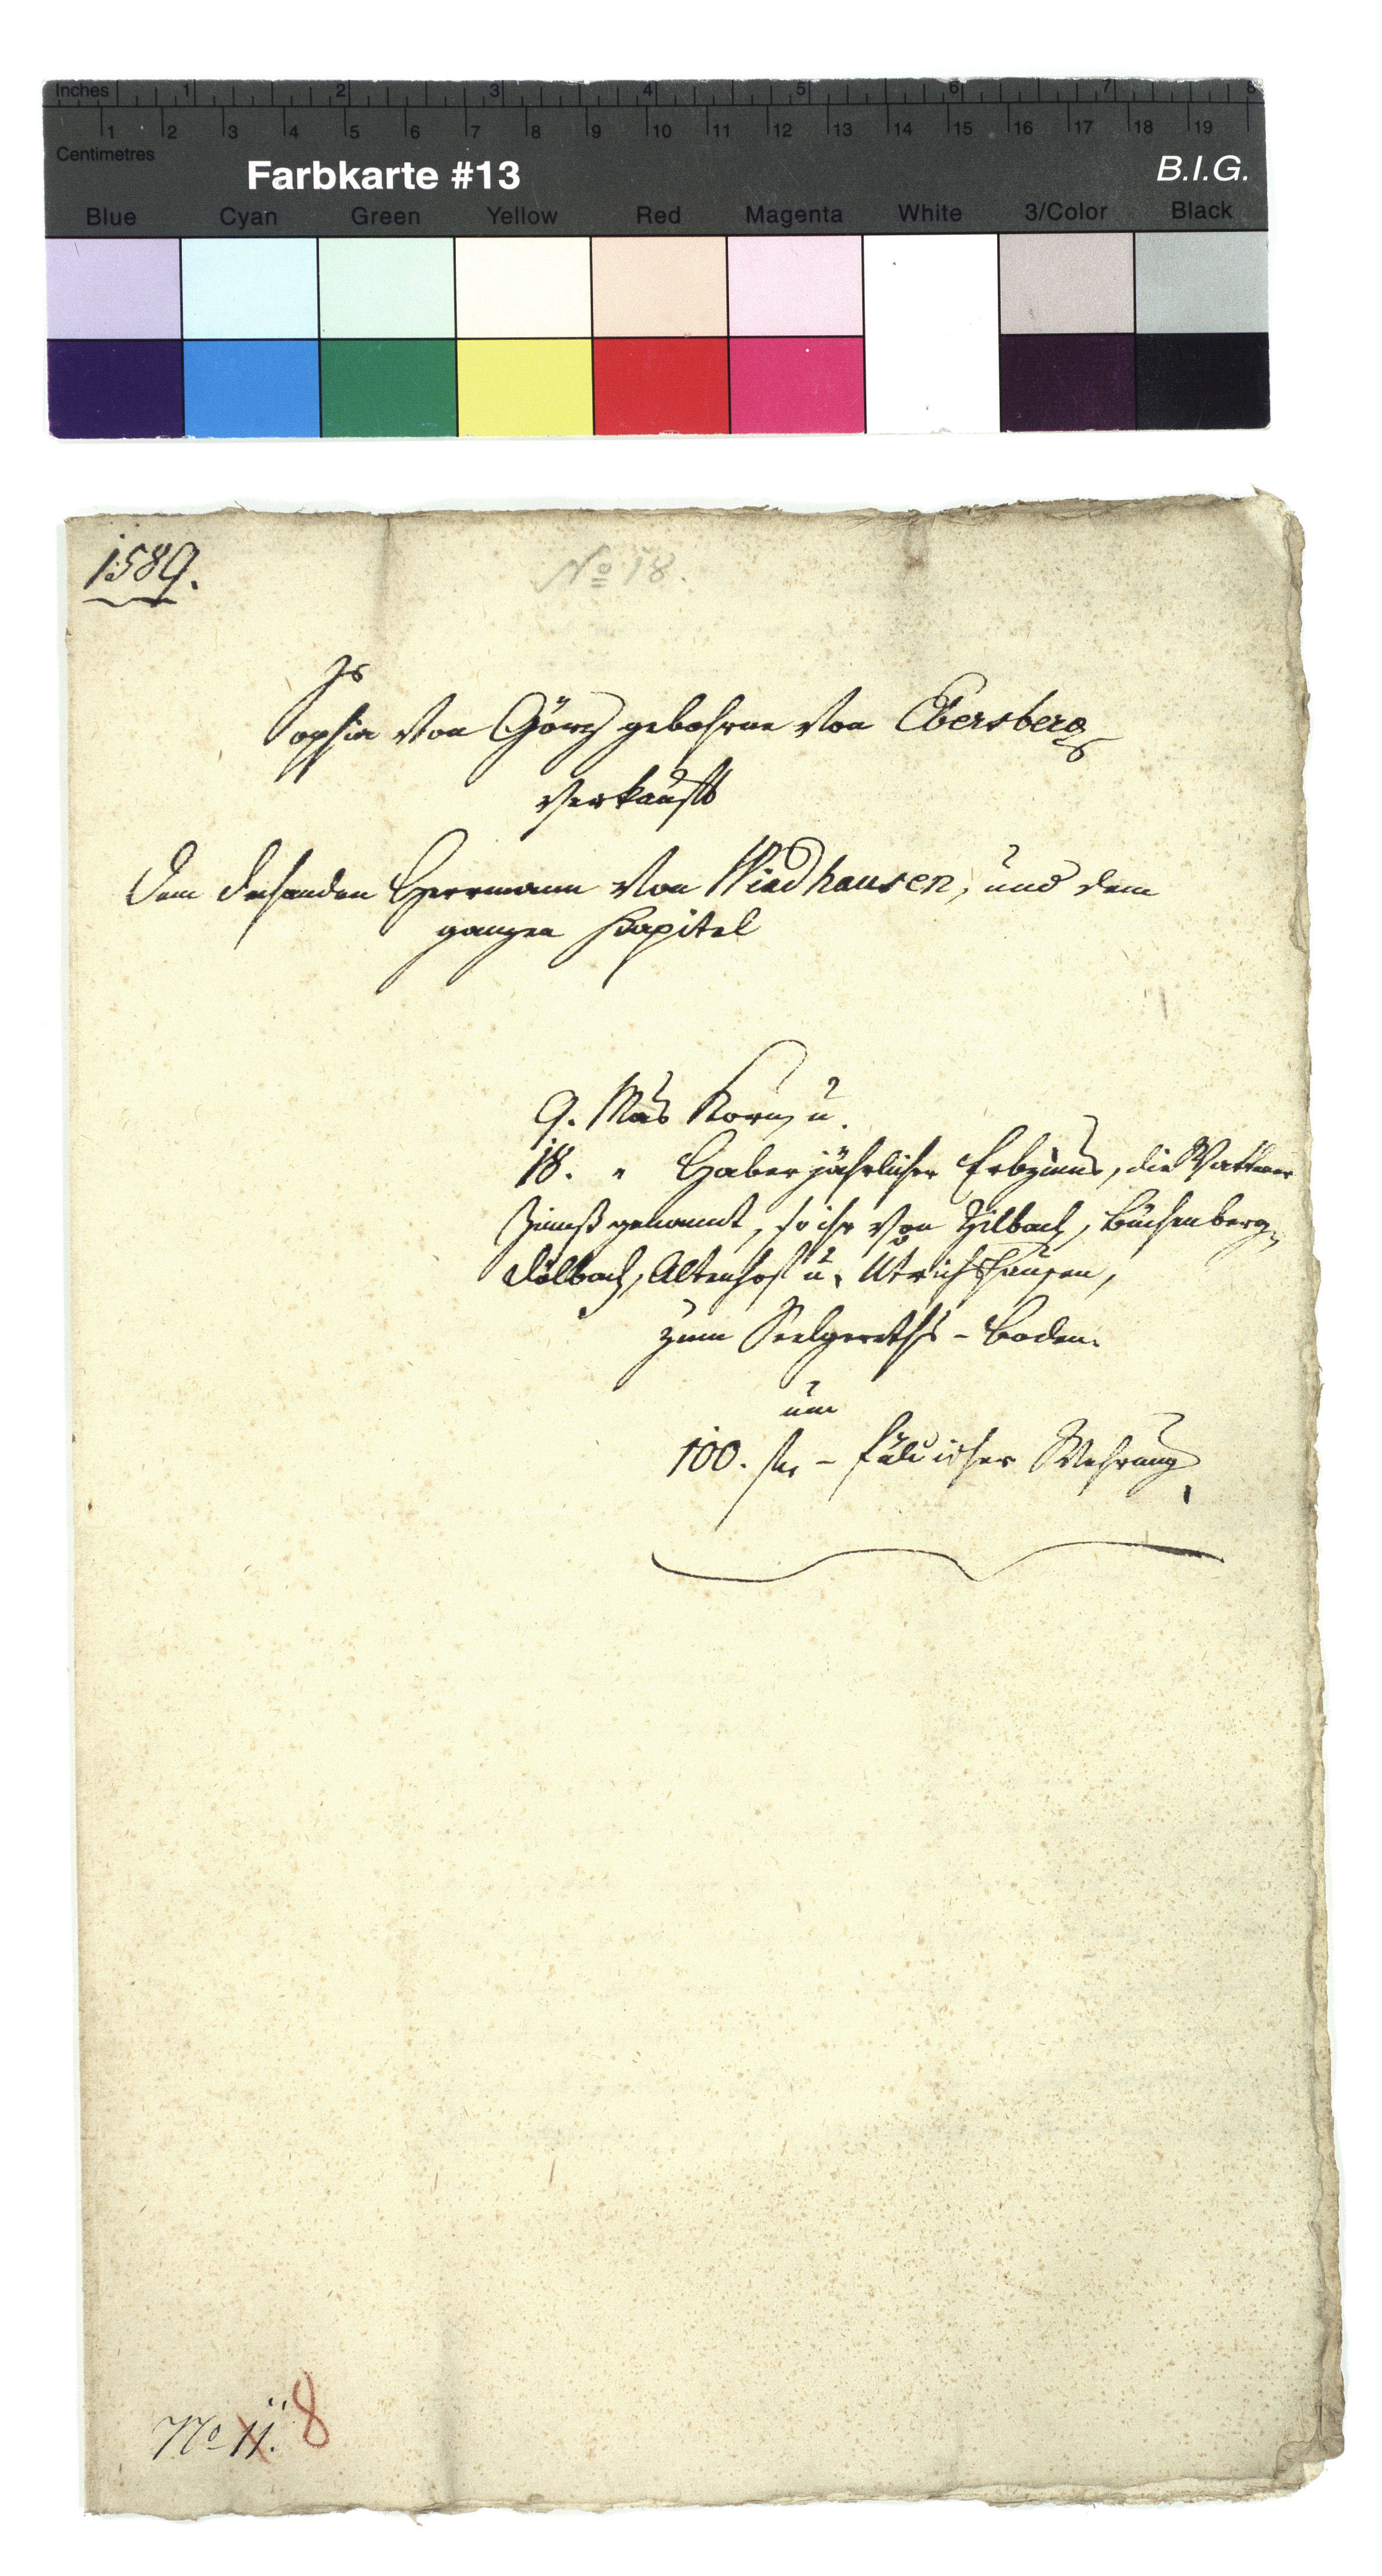 Inches 1 2 3 4 5 6 7 8
1 2 3 4 5 6 7 8 9 10 11 12 13 14 15 16 17 18 19
Centimetres
Farbkarte #13 B.I.G.
Blue Cyan Green Yellow Red Magenta White 3/Color Black
1589.
No 18.
Sophia von Görz gebohrne von Ebersberg
verkauft
dem dechanden Herrmann von Windhausen, und dem
ganzen Kapitel
9. Mas Korn, u.
18. " Haber jährlicher Erbzinns, die
Zinnß genannt, so ihr von Zilbach, Büchenberg,
Dölbach, Altenhof u. Utrichshausen,
zum Seelgereths-Boden.
um
100. fl. - fuldischer Wehrung.
No 11. 8